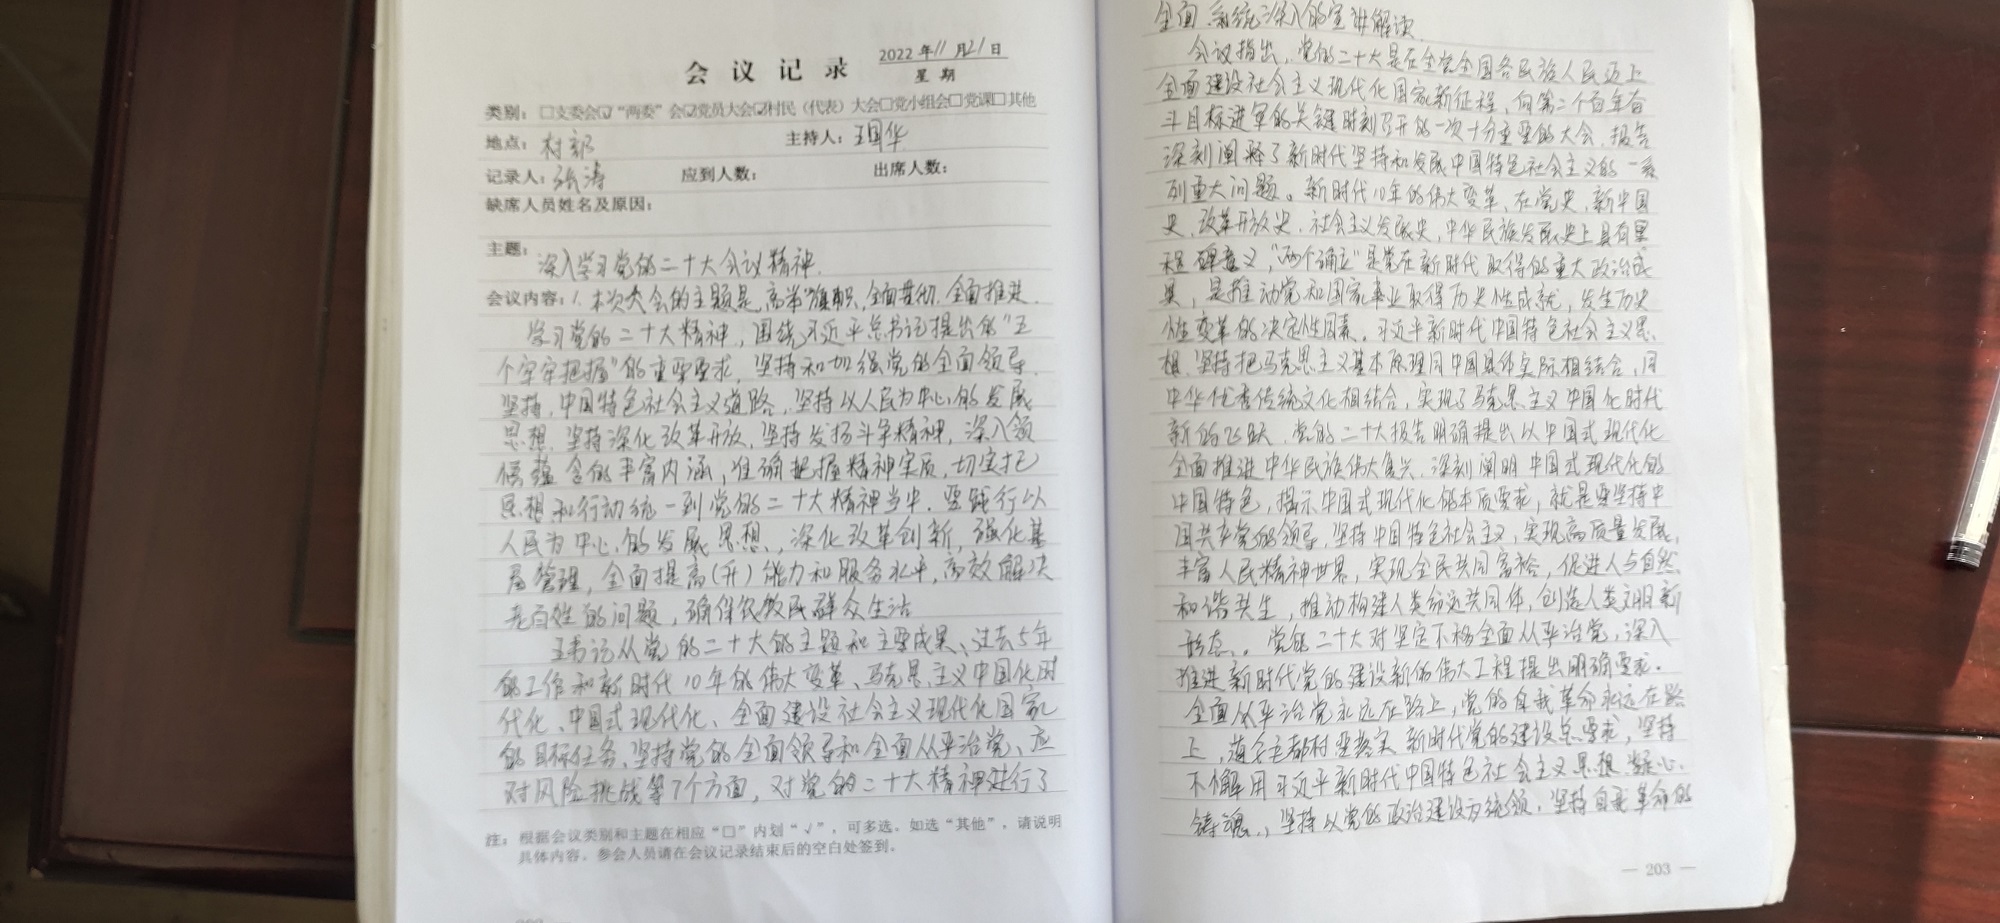 会议记录
2022年11月21日
星期
类别：□支委会☑“两委”会☑党员大会☑村民（代表）大会□党小组会□党课□其他
地点：村部 主持人：王国华
记录人：张涛 应到人数： 出席人数：
缺席人员姓名及原因：
主题：深入学习党的二十大会议精神.
会议内容：1. 本次大会的主题是，高举旗帜、全面贯彻、全面推进.
学习党的二十大精神，围绕习近平总书记提出的“五
个牢牢把握”的重要要求，坚持和加强党的全面领导.
坚持，中国特色社会主义道路，坚持以人民为中心的发展
思想，坚持深化改革开放，坚持发扬斗争精神，深入领
悟蕴含的丰富内涵，准确把握精神实质，切实把
思想和行动统一到党的二十大精神当中，要践行以
人民为中心的发展思想，深化改革创新，强化基
层管理，全面提高(升)能力和服务水平，高效解决
老百姓的问题，确保农牧民群众生活
王书记从党的二十大的主题和主要成果、过去5年
的工作和新时代10年的伟大变革、马克思主义中国化时
代化、中国式现代化、全面建设社会主义现代化国家
的目标任务、坚持党的全面领导和全面从严治党、应
对风险挑战等7个方面，对党的二十大精神进行了
注：根据会议类别和主题在相应“□”内划“√”，可多选，如选“其他”，请说明
具体内容。参会人员请在会议记录结束后的空白处签到。
全面、系统、深入的宣讲解读.
会议指出，党的二十大是在全党全国各民族人民迈上
全面建设社会主义现代化国家新征程，向第二个百年奋
斗目标进军的关键时刻召开的一次十分重要的大会，报告
深刻阐释了新时代坚持和发展中国特色社会主义的一系
列重大问题。新时代10年的伟大变革，在党史，新中国
史，改革开放史，社会主义发展史，中华民族发展史上具有里
程碑意义，“两个确立”是党在新时代取得的重大政治成
果，是推动党和国家事业取得历史性成就，发生历史
性变革的决定性因素。习近平新时代中国特色社会主义思
想，坚持把马克思主义基本原理同中国具体实际相结合，同
中华优秀传统文化相结合，实现了马克思主义中国化时代
新的飞跃，党的二十大报告明确提出以中国式现代化
全面推进中华民族伟大复兴，深刻阐明中国式现代化的
中国特色，揭示中国式现代化的本质要求，就是要坚持中
国共产党的领导，坚持中国特色社会主义，实现高质量发展，
丰富人民精神世界，实现全民共同富裕，促进人与自然
和谐共生，推动构建人类命运共同体，创造人类文明新
形态。党的二十大对坚定不移全面从严治党，深入
推进新时代党的建设新的伟大工程提出明确要求.
全面从严治党永远在路上，党的自我革命永远在路
上，毛都村要落实新时代党的建设总要求，坚持
不懈用习近平新时代中国特色社会主义思想凝心.
铸魂，坚持以党的政治建设为统领，坚持自我革命的
— 203 —